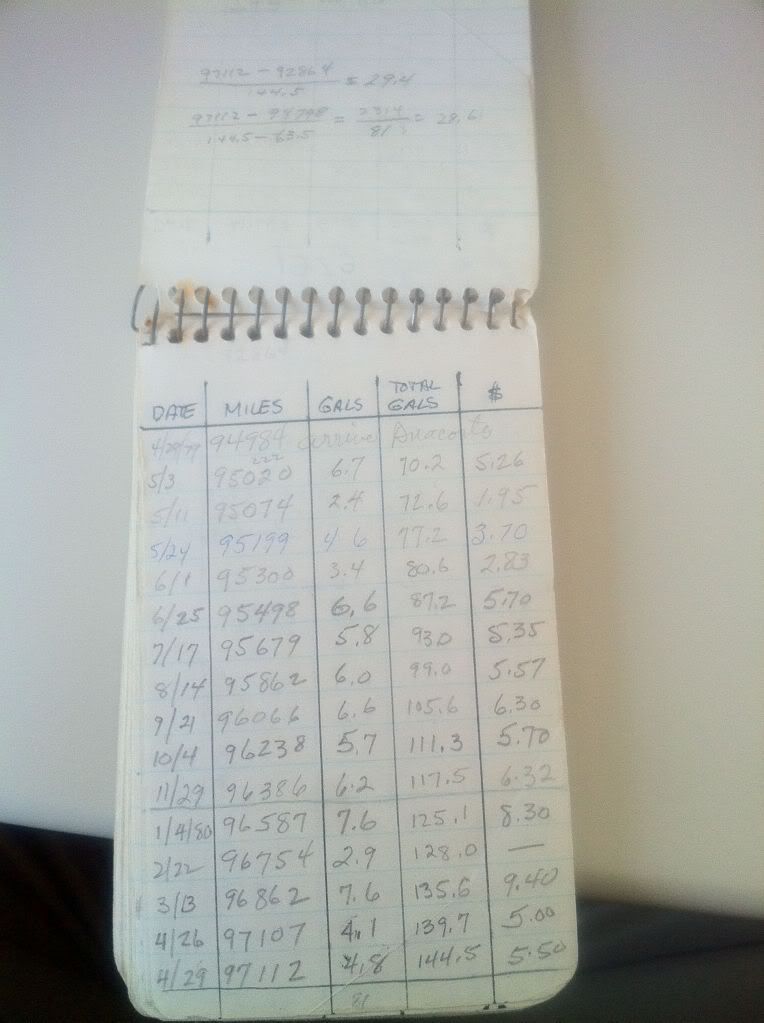 97112 - 92864 / 144.5 = 29.4
97112 - 94798 / 144.5 - 63.5 = 2314 / 81 = 28.6
DATE MILES GALS TOTAL GALS $
4/29/79 94984 arrive Anacortes
222
5/3 95020 6.7 70.2 5.26
5/11 95074 2.4 72.6 1.95
5/24 95199 4.6 77.2 3.70
6/1 95300 3.4 80.6 2.83
6/25 95498 6.6 87.2 5.70
7/17 95679 5.8 93.0 5.35
8/14 95862 6.0 99.0 5.57
9/21 96066 6.6 105.6 6.30
10/4 96238 5.7 111.3 5.70
11/29 96386 6.2 117.5 6.32
1/4/80 96587 7.6 125.1 8.30
2/22 96754 2.9 128.0 —
3/13 96862 7.6 135.6 9.40
4/26 97107 4.1 139.7 5.00
4/29 97112 4.8 144.5 5.50
81